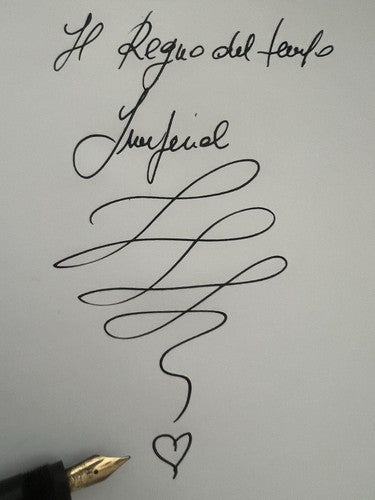 Il Regno del tempo
Imperial